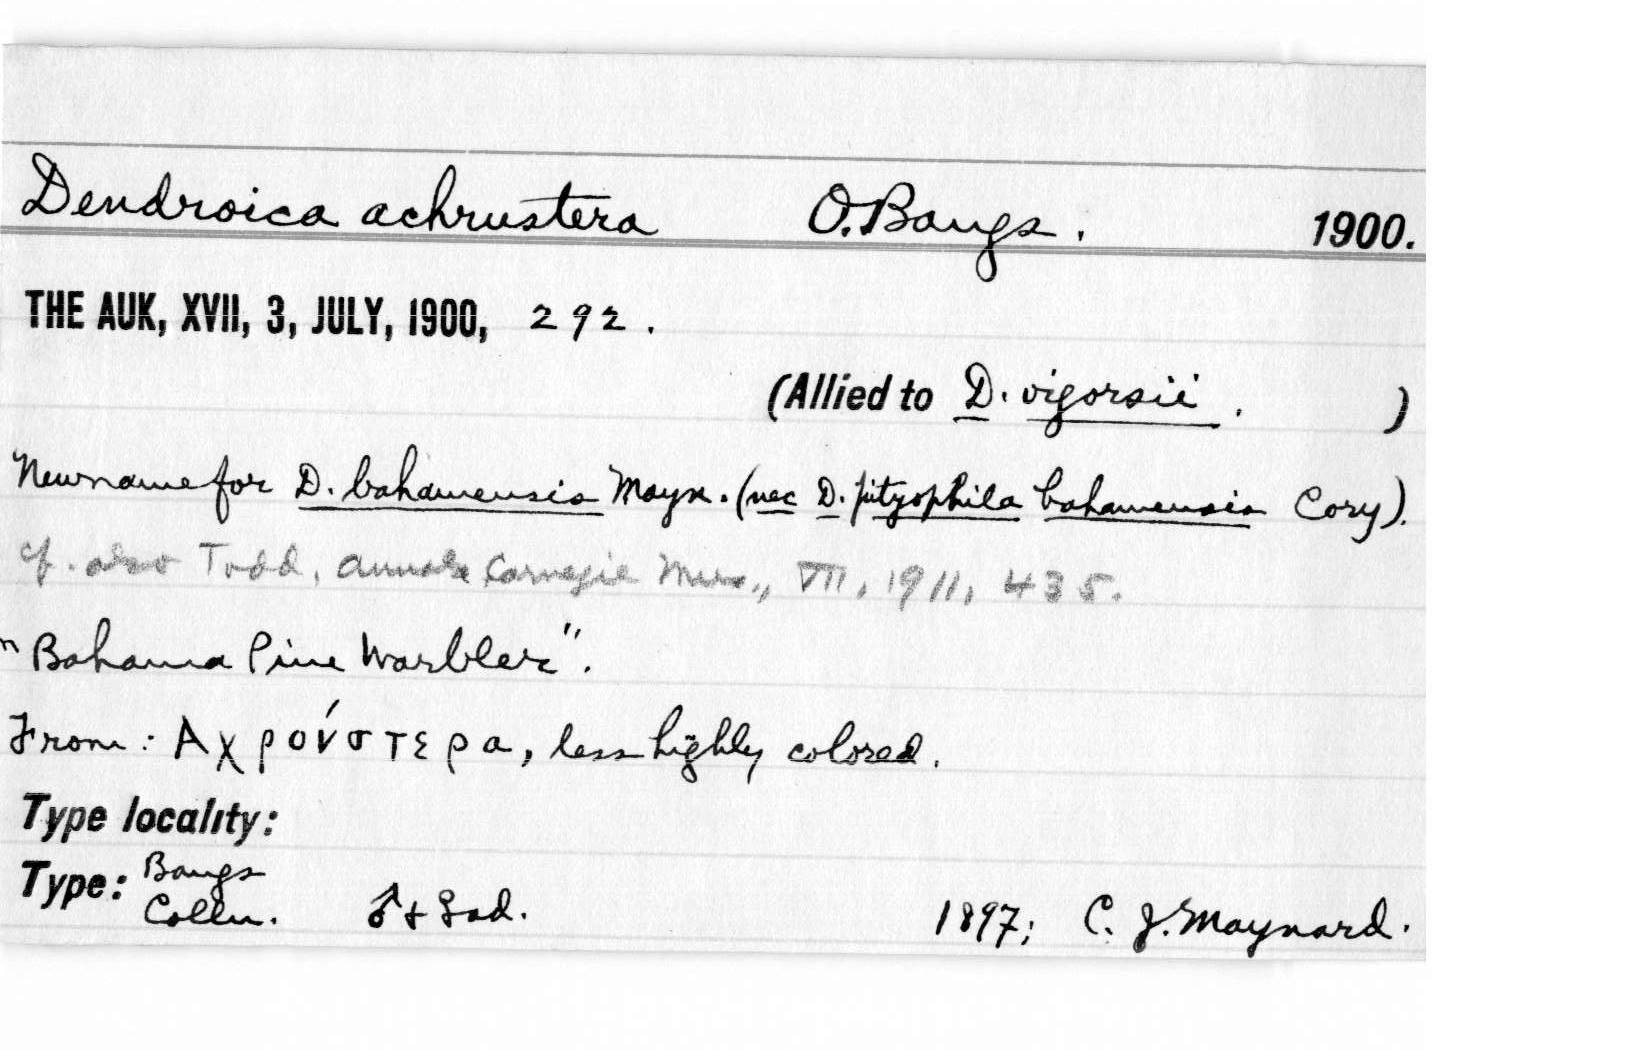 Dendroica achrustera O. Bangs. 1900.
THE AUK, XVII, 3, JULY, 1900, 292.
(Allied to D. vigorsii. )
New name for D. bahamensis Mayn. (nec D. pityophila bahamensis Cory).
cf. also Todd, Annals Carnegie Mus., VII, 1911, 435.
"Bahama Pine Warbler".
From: Αχρούστερα, less highly colored.
Type locality:
Type: Bangs
Colln. ♂ & ♀ ad. 1897; C. J. Maynard.